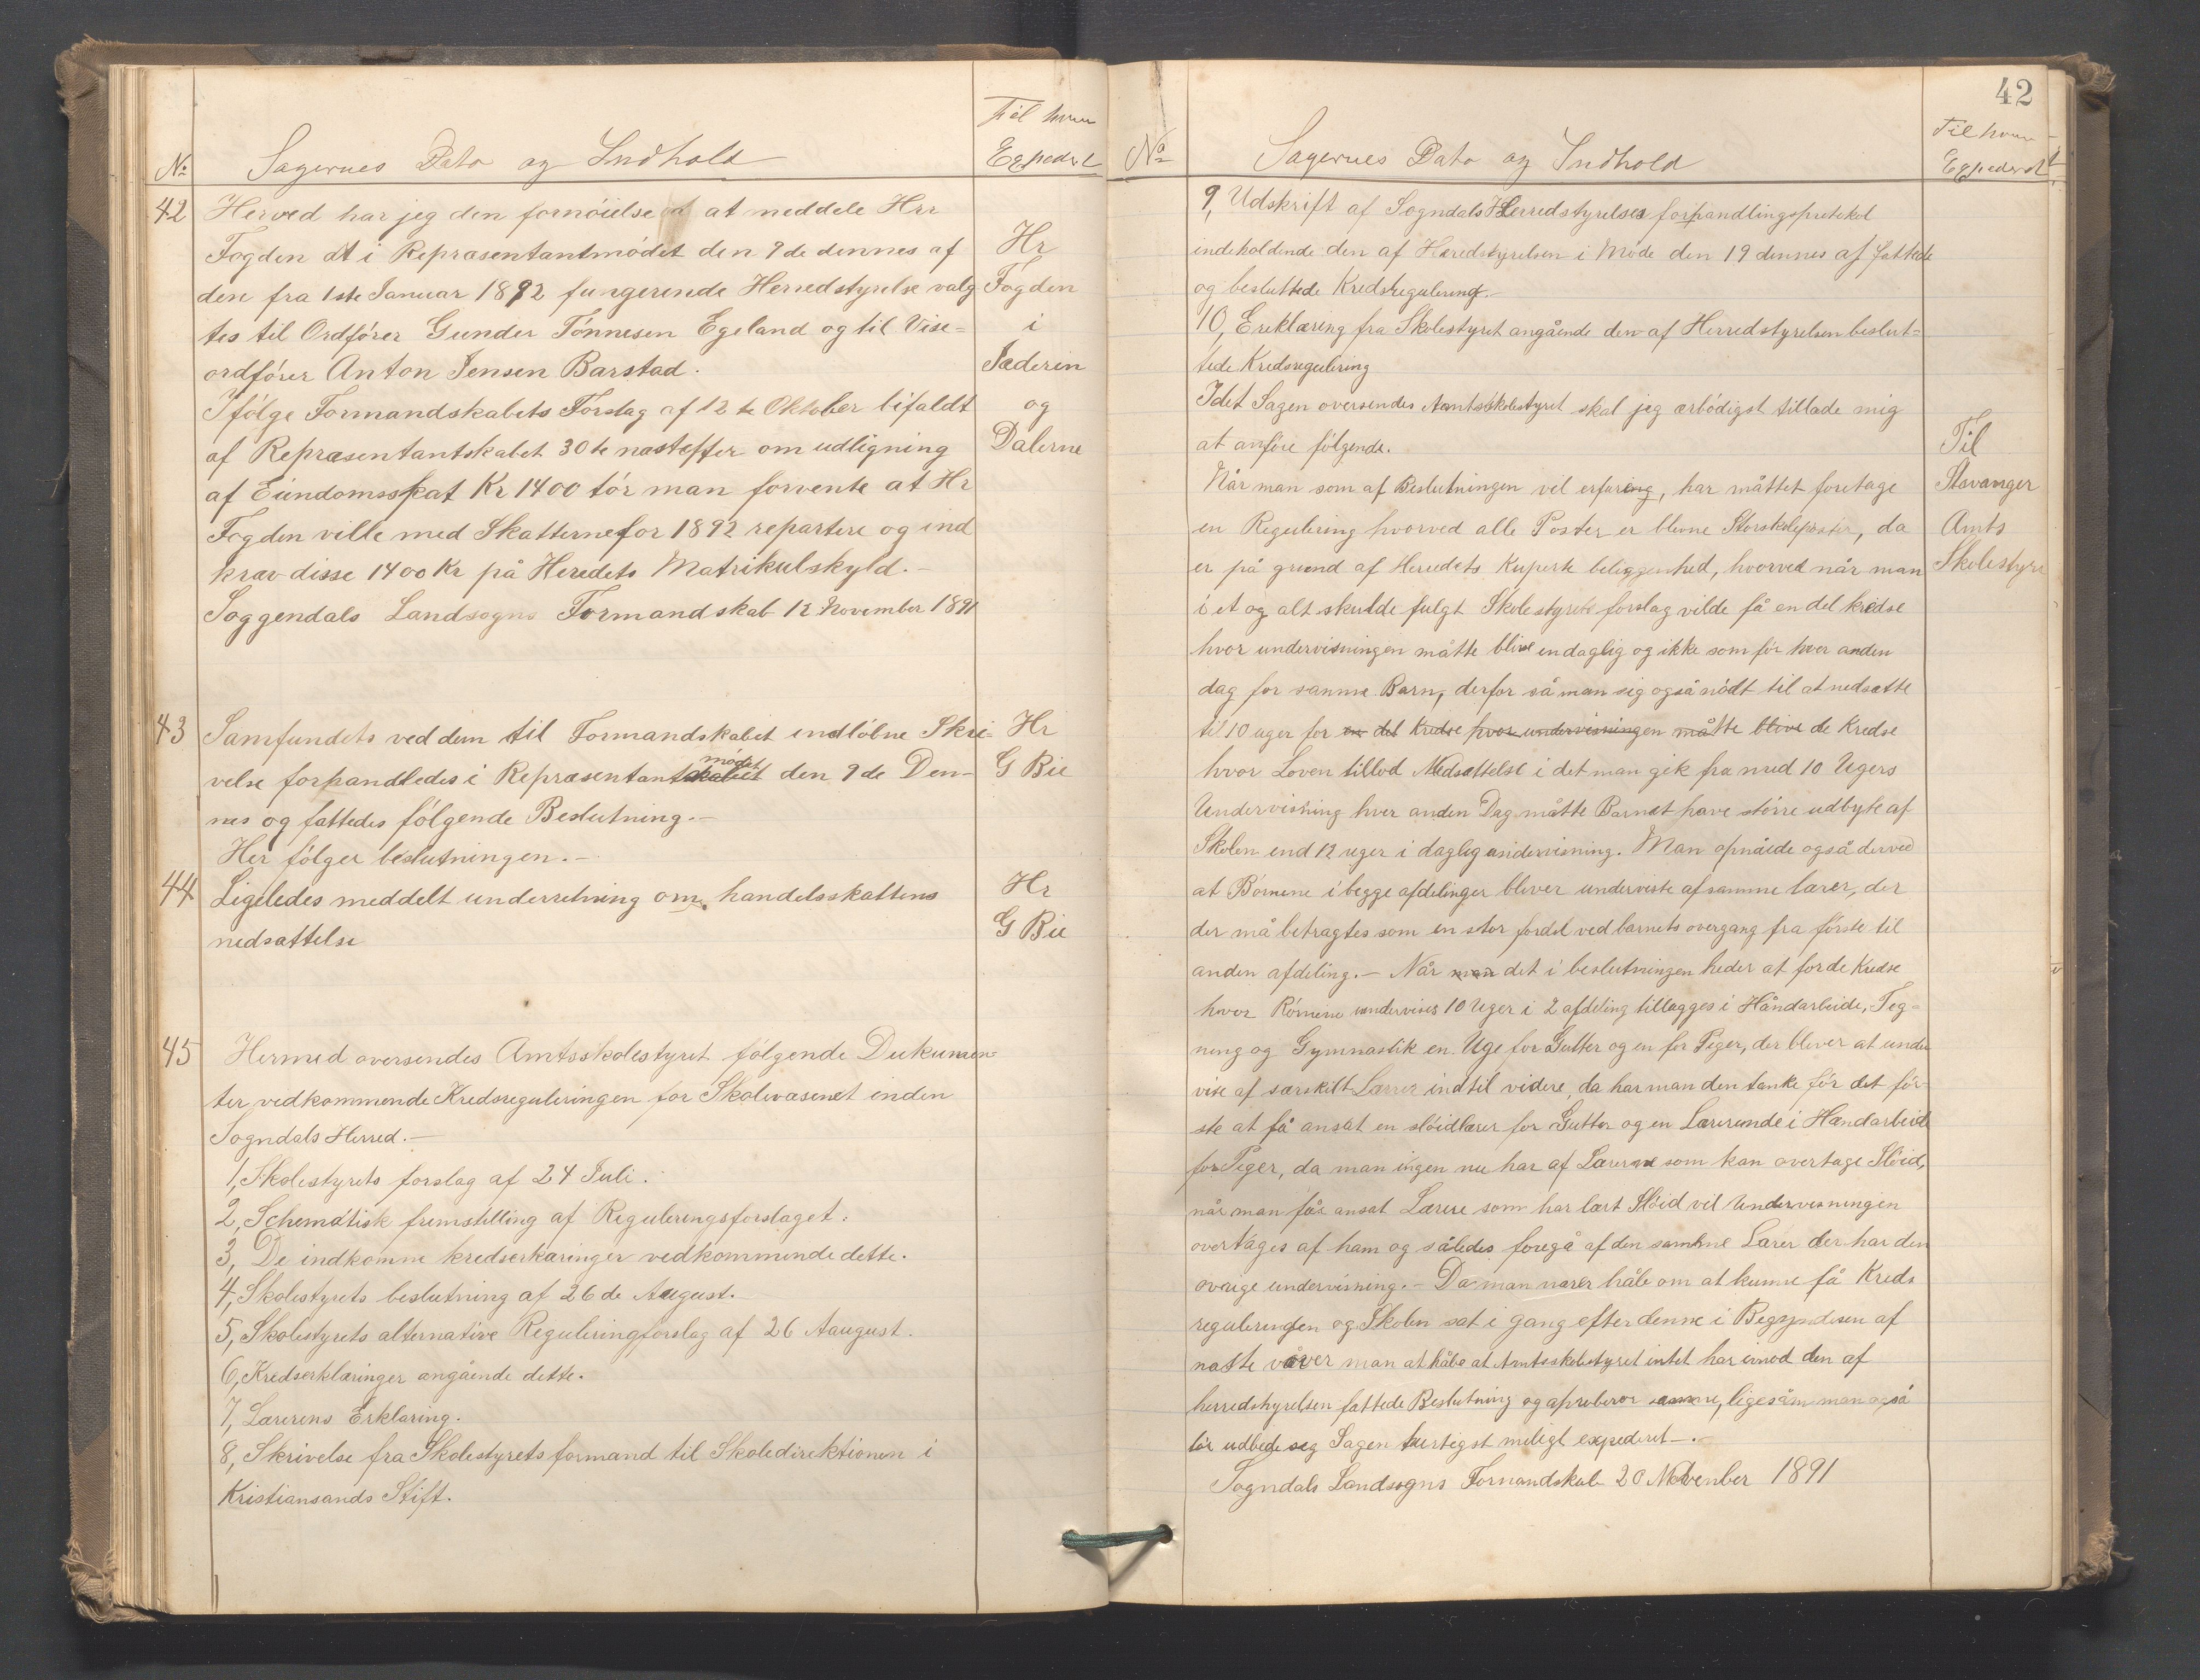 No Sagernes Dato og Indhold Til hvem Expederet
42 Herved har jeg den fornöielse at meddele Hrr
Fogden at i Repræsentantmödet den 9de dennes af
den fra 1ste Januar 1892 fungerende Herredstyrelse valg
tes til Ordförer Gunder Tönnesen Egeland og til Vise-
ordförer Anton Jensen Barstad.
Ifölge Formandskabets Forslag af 12te Oktober bifaldt
af Repræsentantskabet 30te næstefter om udligning
af Eiendomsskat Kr 1400 tör man forvente at Hr
Fogden ville med Skatterne for 1892 repartere og ind
kræv disse 1400 Kr på Heredets Matrikulskyld.-
Soggendals Landsogns Formandskab 12 November 1891
Hr
Fogden
i
Jæderen
og
Dalerne
43 Samfundets ved dem til Formandskabet indlöbne Skri-
velse forhandledes i Repræsentantskabet mödet den 9de Den-
nes og fattedes fölgende Beslutning.-
Her fölger beslutningen.-
Hr
G Bie
44 Ligeledes meddelt underretning om handelsskattens
nedsættelse
Hr
G Bie
45 Hermed oversendes Amtsskolestyret fölgende Dukumen-
ter vedkommende Kredsreguleringen for Skolevæsenet inden
Sogndals Herred.-
1, Skolestyrets forslag af 24 Juli.
2, Schematisk fremstilling af Reguleringsforslaget.
3, De indkomne kredserkæringer vedkommende dette.
4, Skolestyrets beslutning af 26de August.
5, Skolestyrets alternative Reguleringforslag af 26 Aaugust.
6, Kredserklæringer angående dette.
7, Lærerens Erklæring.
8, Skrivelse fra Skolestyrets formand til Skoledirektionen i
Kristiansands Stift.
42
No Sagernes Dato og Indhold Til hvem Expederet
9, Udskrift af Sogndals Herredstyrelses forhandlingsprotokol
indeholdende den af Heredstyrelsen i Möde den 19 dennes af fattede
og besluttede Kredsregulering.-
10, Ereklæring fra Skolestyret angående den af Herredstyrelsen beslut-
tede Kredsregulering
Idet Sagen oversendes Aamtsskolestyret skal jeg ærbödigst tillade mig
at anföre fölgende.
Når man som af Beslutningen vil erfaring, har måttet foretage
en Regulering hvorved alle Poster er blevne Storskoleposter, da
er på grund af Heredets Kuperte beliggenhed, hvorved når man
i et og alt skulde fulgt Skolestyrets forslag vilde få en del kredse
hvor undervisningen måtte blive endaglig og ikke som för hver anden
dag for samme Barn, derfor så man sig også nödt til at nedsætte
til 10 uger for en del Kredse hvor undervisningen måtte blive de Kredse
hvor Loven tillod Nedsættelse i det man gik fra med 10 Ugers
Undervisning hver anden Dag måtte Barnet have större udbyte af
Skolen end 12 uger i daglig undervisning. Man opnåede også derved
at Börnene i begge afdelinger bliver underviste af samme lærer, der
der må betragtes som en stor fordel ved barnets overgang fra förste til
anden afdeling.- Når man det i beslutningen heder at for de Kredse
hvor Börnene undervises 10 Uger i 2 afdeling tillægges i Håndarbeide, Teg-
ning og Gymnastik en Uge for Gutter og en for Piger, der bliver at under
vise af særskilt Lærer indtil videre, da har man den tanke för det för-
ste at få ansat en slöidlærer for Gutter og en Lærerinde i Hændarbeide
for Piger, da man ingen nu har af Lærerne som kan overtage Slöid,
når man får ansat Lærere som har lært Slöid vil Undervisningen
overtages af ham og således foregå af den samme Lærer der har den
övrige undervisning.- Da man nærer håb om at kunne få Kreds
reguleringen og Skolen sat i gang efter denne i Begyndesen af
næste våver man at håbe at Amtsskolestyret intet har imod den af
herredstyrelsen fattede Beslutning og aproberer samme, ligesåm man også
tör udbede sig Sagen hurtigst meligt expederet-.-
Sogndals Landsogns Formandskab 20 November 1891
Til
Stavanger
Amts
Skolestyre